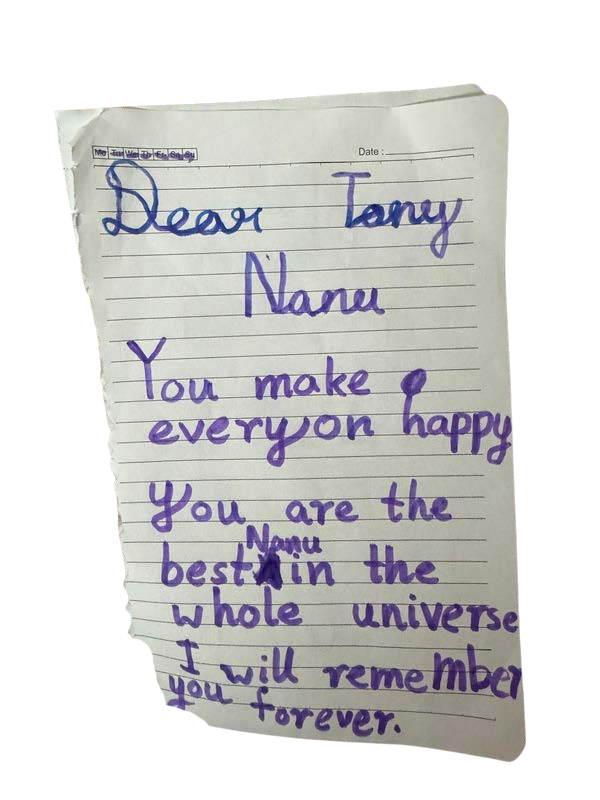 Mo Tue We Th Fr Sa Su
Date :
Dear Tony
Nanu
You make
everyon happy
You are the
Nanu
best in the
whole universe
I will remember
you forever.